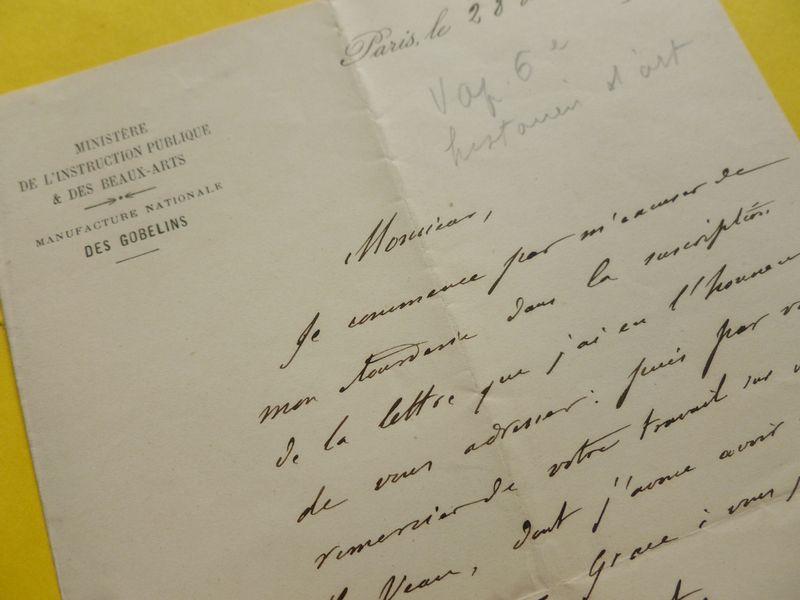 Paris, le 28
Vap. 6e
historien d'art
MINISTÈRE
DE L'INSTRUCTION PUBLIQUE
& DES BEAUX-ARTS
MANUFACTURE NATIONALE
DES GOBELINS
Monsieur,
Je commence par m'excuser de
mon étourderie dans la suscription
de la lettre que j'ai eu l'honneur
de vous adresser : puis par
remercier de votre travail sur
Veau, dont j'avoue avoir
Grace à vous